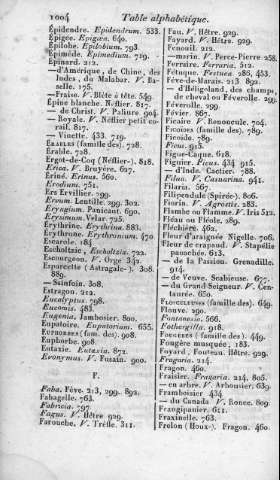 1004 Table alphabétique.
Épidendre. Epidendrum. 533.
Épigée. Epigæa. 640.
Épilobe. Epilobium. 793.
Épimède. Epimedium. 719.
Épinard. 212.
—d'Amérique, de Chine, des
Indes, du Malabar. V. Ba-
selle. 175.
—Fraise. V. Blète à tête. 549.
Épine blanche. Néflier. 817.
— de Christ. V. Paliure. 904.
— Royale. V. Néflier petit co-
rail. 817.
— Vinette. 433. 719.
Érables (famille des). 728.
Érable. 728.
Ergot-de-Coq (Néflier-). 818.
Erica. V. Bruyère. 627.
Eriné. Erinus. 560.
Erodium. 751.
Ers Ervillier. 799.
Ervum. Lentille. 299. 302.
Eryngium. Panicaut. 690.
Erysimum. Velar. 725.
Erythrine. Erythrina. 883.
Erythrone. Erythronium. 470
Escarole. 184
Escholtzie. Escholtzia. 722.
Escourgeon. V. Orge 342.
Esparcette (Astragale-). 308.
889.
— Sainfoin. 308.
Estragon. 212.
Eucalyptus. 798.
Eucomis. 483.
Eugenia. Jambosier. 800.
Eupatoire. Eupatorium. 655.
Euphorbes (fam. des). 908.
Euphorbe. 908.
Eutaxie. Eutaxia. 872.
Evonymus. V. Fusain. 900.
F.
Faba. Fève. 213, 299. 892.
Fabagelle. 763.
Fabricia. 797.
Fagus. V. Hêtre. 929.
Farouche. V. Trèfle. 311.
Fau. V. Hêtre. 929.
Fayard. V. Hêtre. 929.
Fenouil. 212.
—marin. V. Perce-Pierre. 258.
Ferraire. Ferraria. 512.
Fétuque. Festuca. 286, 453.
Fève-de-Marais. 213. 892.
—d'Héligoland, des champs,
de cheval ou Féverolle. 299.
Féverolle. 299.
Févier. 867.
Ficaire V. Renoncule. 704.
Ficoïdes (famille des). 789.
Ficoïde. 789.
Ficus. 913.
Figue-Caque. 618.
Figuier. Ficus. 434. 915.
—d'Inde. Cactier. 788.
Filao. V. Casuarina. 941.
Filaria. 567.
Filipendule (Spirée-). 806.
Fiorin. V. Agrostis. 283.
Flambe ou Flamme. V. Iris 512.
Fléau ou Fléole. 289.
Fléchière. 462.
Fleur d'araignée. Nigelle. 706.
Fleur de crapaud. V. Stapélie
panachée. 613.
— de la Passion. Grenadille.
914.
— de Veuve. Scabieuse. 677.
— du Grand Seigneur. V. Cen-
taurée. 650.
Flouve. 290.
Fontanesie. 566.
Fothergilla. 918.
Fougères (famille des). 449.
Fougère musquée. 183.
Foyard, Fouteau. Hêtre. 929.
Fragaria. 214.
Fragon. 460.
Fraisier. Fragaria. 214. 805.
— en arbre. V. Arbousier. 639.
Framboisier 434
— du Canada V. Ronce. 809.
Frangipanier. 611.
Fraxinelle. 763.
Frelon (Houx-). Fragon. 460